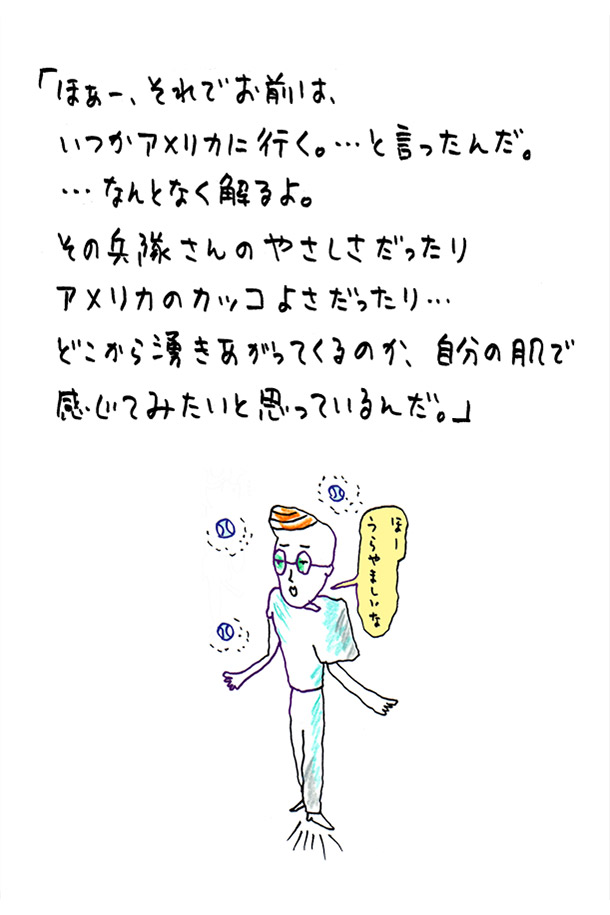 「ほぁー、それでお前は、
いつかアメリカに行く。…と言ったんだ。
…なんとなく解るよ。
その兵隊さんのやさしさだったり
アメリカのカッコよさだったり…
どこから湧きあがってくるのか、自分の肌で
感じてみたいと思っているんだ。」
ほー
うらやましいな